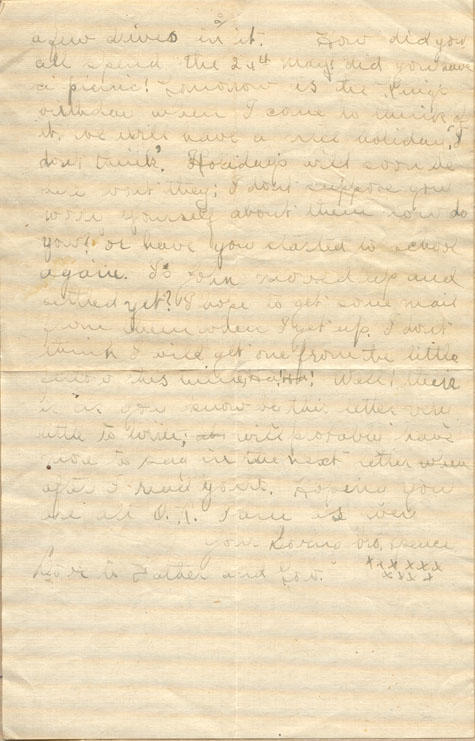 2/
a few dives in it. How did you
all spend the 24th May? did you have
a picnic! Tomorrow is the King's
birthday when I come to think of
it, we will have a nice holiday, "I
don't think". Holidays will soon be
here wont they; I dont suppose you
worry yourself about them now do
you? or have you started to school
again. Is moved up and
settled yet? I hope to get some mail
from when I get up. I don't
think I will get one from the little
this time! Well! there
is as you know in this letter very
little to write; will probable have
more to say in the next letter when
after I read yours. Hoping you
are all O.K. I am as ever
Your Loving bro,
Love to Father and "
x x x x x x
x x x x